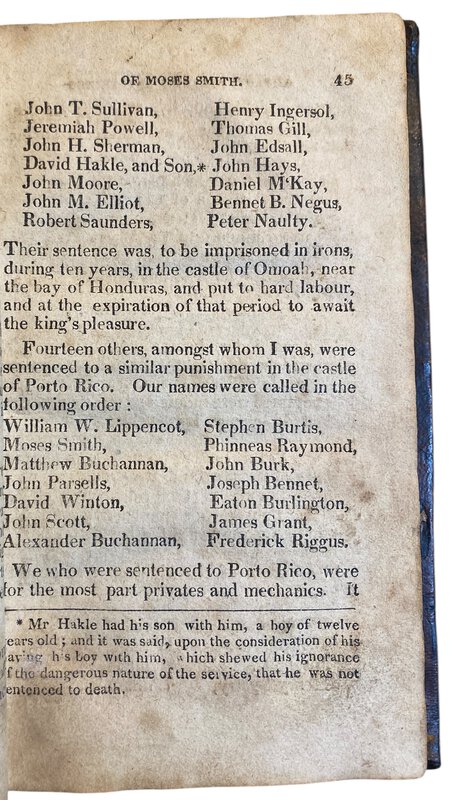 OF MOSES SMITH. 45
John T. Sullivan, Henry Ingersol,
Jeremiah Powell, Thomas Gill,
John H. Sherman, John Edsall,
David Hakle, and Son,* John Hays,
John Moore, Daniel M'Kay,
John M. Elliot, Bennet B. Negus,
Robert Saunders, Peter Naulty.
Their sentence was, to be imprisoned in irons,
during ten years, in the castle of Omoah, near
the bay of Honduras, and put to hard labour,
and at the expiration of that period to await
the king's pleasure.
Fourteen others, amongst whom I was, were
sentenced to a similar punishment in the castle
of Porto Rico. Our names were called in the
following order :
William W. Lippencot, Stephen Burtis,
Moses Smith, Phinneas Raymond,
Matthew Buchannan, John Burk,
John Parsells, Joseph Bennet,
David Winton, Eaton Burlington,
John Scott, James Grant,
Alexander Buchannan, Frederick Riggus.
We who were sentenced to Porto Rico, were
for the most part privates and mechanics. It
* Mr Hakle had his son with him, a boy of twelve
ears old ; and it was said, upon the consideration of his
aving his boy with him, which shewed his ignorance
f the dangerous nature of the service, that he was not
entenced to death.